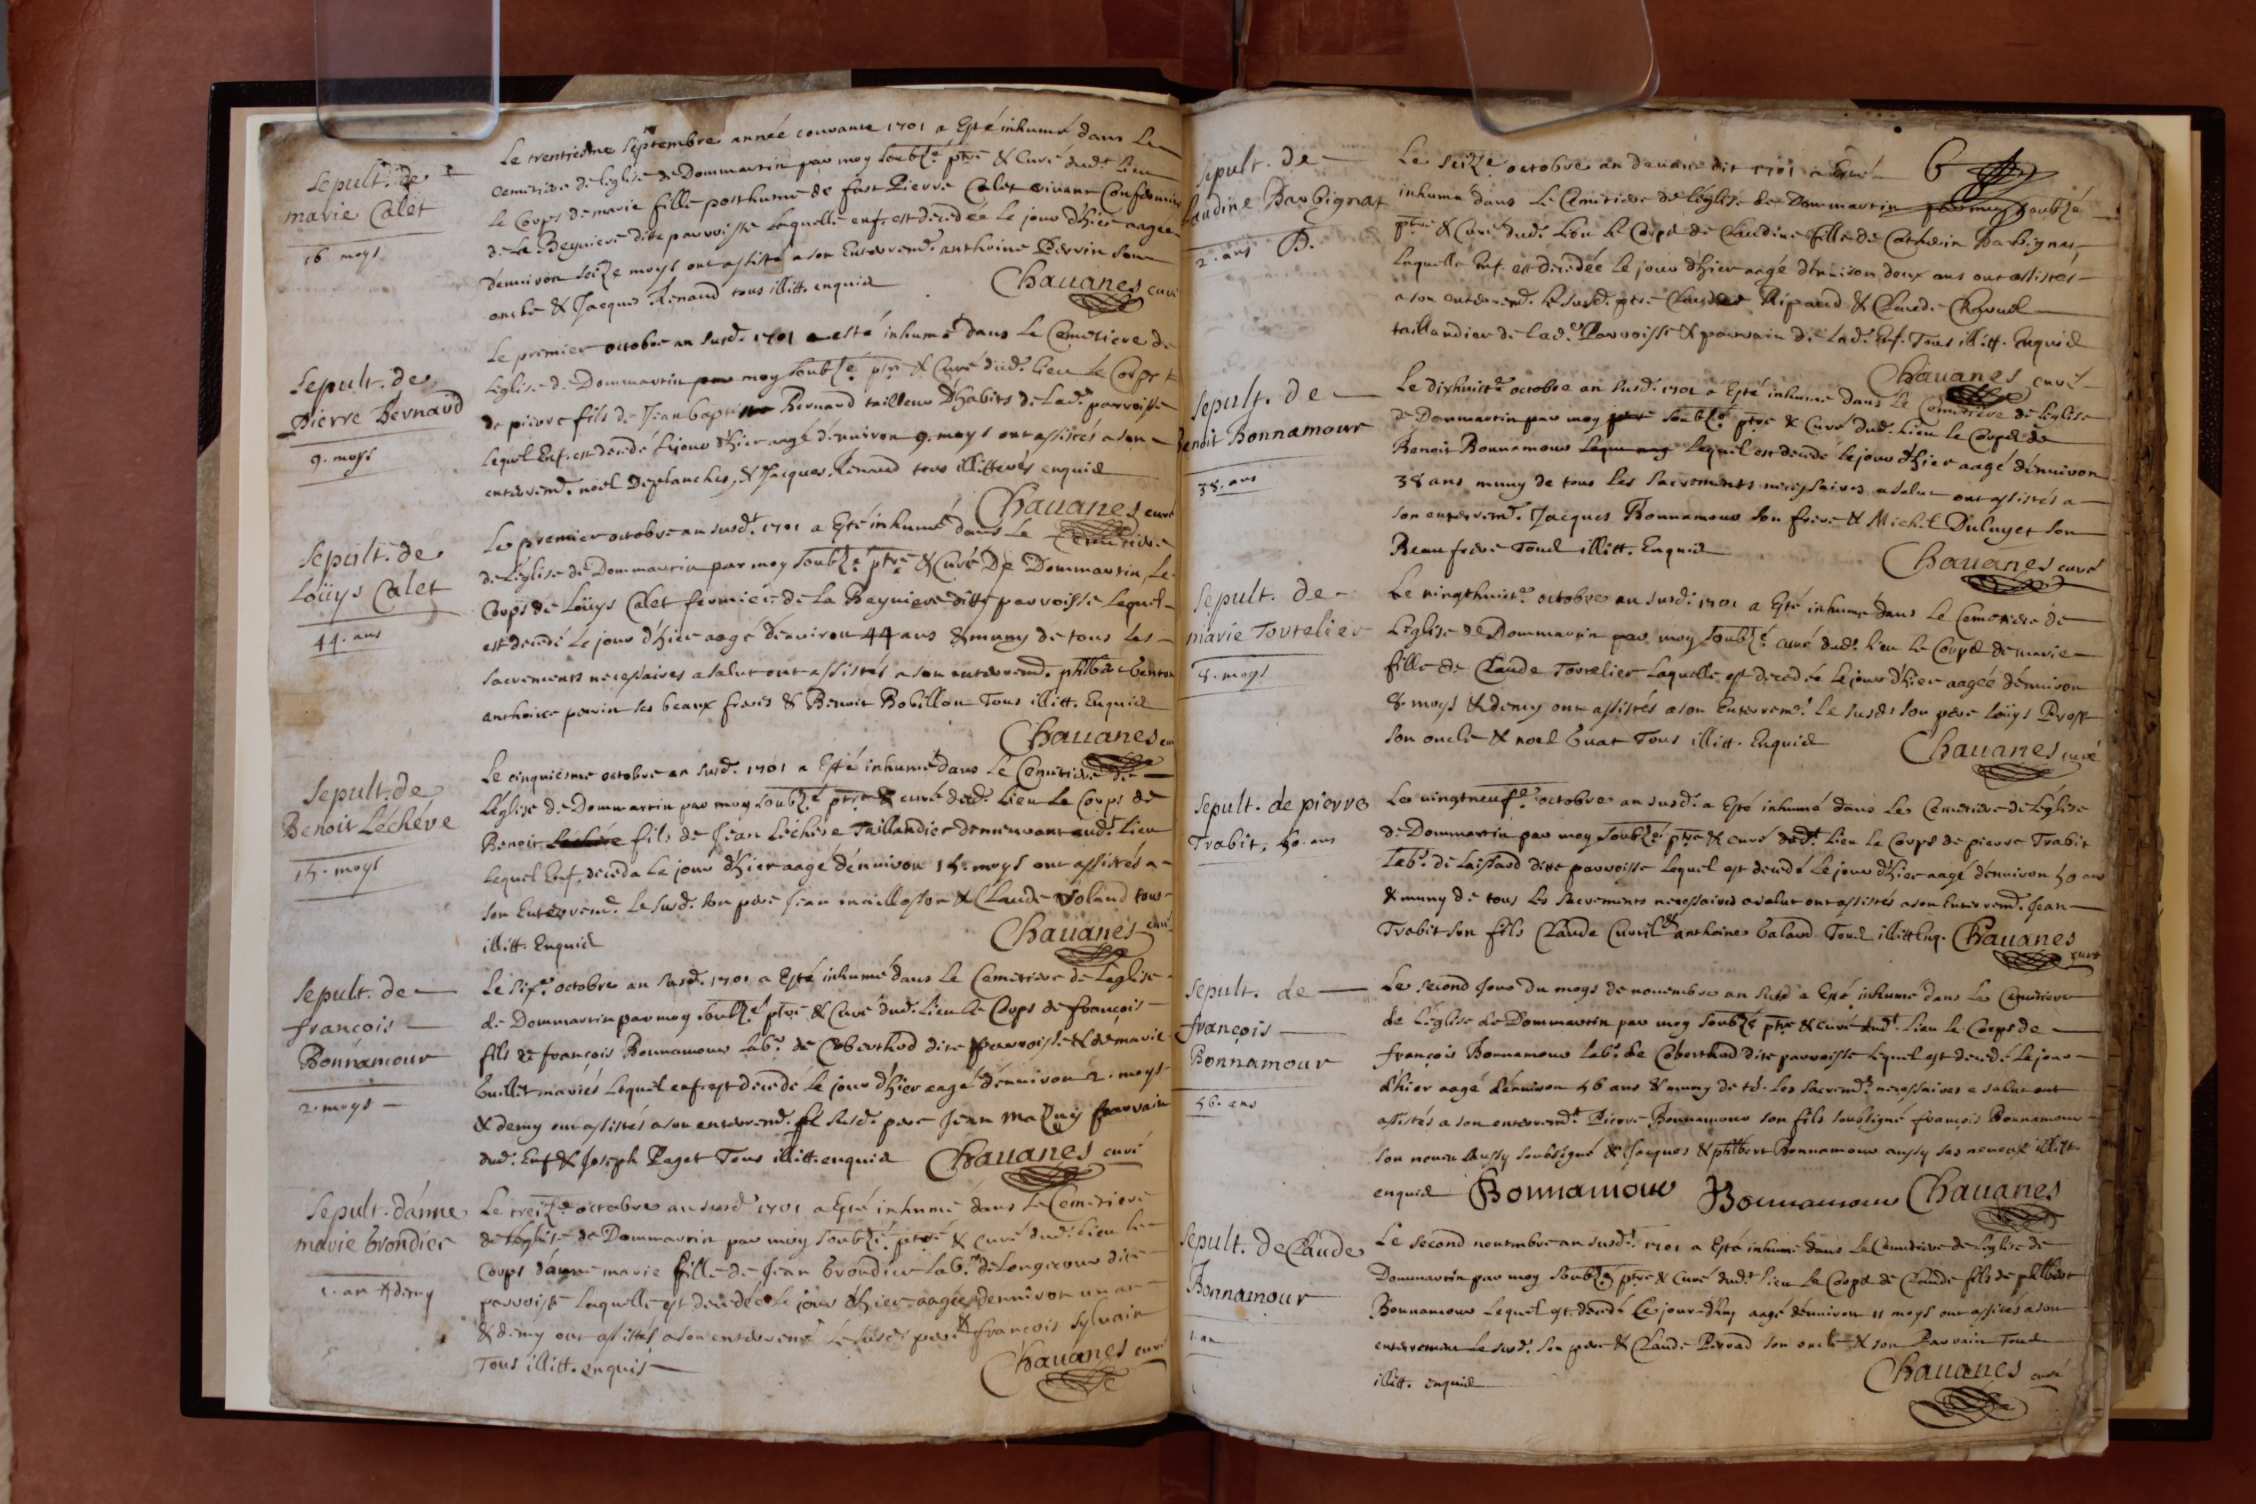 Sepult. de
marie Calet
16 moys
Le trentiesme septembre année courante 1701 a Esté inhumé dans Le
Cemetiere de léglise de Dommartin par moy soubzé. ptre & Curé dudt. Lieu
Le Corps de marie fille posthume de fust Pierre Calet vivant
de La Beyniere dite parroisse Laquelle enf. est decedée le jour d'hier aagée
dénuiron seize moys ont assisté a son Enterremd. anthoine Perrin son
oncle & Jacques Renaud tous illitt. enquis
Chauanes curé
Sepult. de
Pierre Bernard
9. moys
Le premier octobre an susd. 1701 a esté inhumé dans Le Cemetiere de
Léglise de Dommartin par moy soubzé. ptre & Curé dudt. Lieu Le Corps
de pierre fils de Jean baptiste Bernard tailleur d'habits de Lade. parroisse
Lequel Enf. est decedé Lejour d'hier aagé dénuiron 9. moys ont assistés a son
enterremd. noël Desplanches, & Jacques Renaud tous illitterés enquis
Chauanes curé
Sepult. de
Loüys Calet
44. ans
Le premier octobre an susdt. 1701 a Esté inhumé dans Le Cemetiere
de Léglise de Dommartin par moy soubzé. ptre & Curé De Dommartin, Le
Corps de Loüys Calet fermier de La Beyniere ditte parroisse Lequel
est decedé Le jour d'hier aagé dénuiron 44 ans & muny de tous Les
sacrements necessaires a salut ont assistés a son enterremd. philbert
anthoine perrin ses beaux freres & Benoit Bobillon Tous illitt. Enquis
Chauanes
Sepult. de
Benoit Léchére
15. moys
Le cinquiesme octobre an susd. 1701 a Esté inhumé dans Le Cemetiere de
Léglise de Dommartin par moy soubzé ptre & curé dudt. Lieu Le Corps de
Benoit fils de Jean Léchere Taillandier demeurant audt. Lieu
Lequel Enf. deceda Le jour d'hier aagé dénuiron 15. moys ont assistés a
son Enterremd. Le susd. son pere Jean & Claude Voland tous
illitt. Enquis
Chauanes curé
Sepult. de
françois
Bonnamour
2. moys
Le sixe. octobre an susd. 1701 a Esté inhumé dans Le Cemetiere de Léglise
de Dommartin par moy soubzé ptre & Curé dudt. Lieu Le Corps de françois
fils de françois Bonnamour Labr. de Coberthod dite parroisse & de marie
Guillet mariés Lequel enf. est decedé Le jour d'hier aagé dénuiron 2. moys
& demy ont assistés a son enterremd. Le susd. pere Jean parrain
dudt. Enf. & Joseph Paget Tous illitt. enquis
Chauanes curé
Sepult. d'anne
marie brondier
1. an & demy
Le treize. octobre an susd. 1701 a Esté inhumé dans Le Cemetiere
de léglise de Dommartin par moy soubzé. ptre & curé dudt. Lieu Le
Corps d'anne marie fille de Jean brondier Labr. de Longecour dite
parroisse Laquelle est decedée Le jour d'hier aagée dénuiron un an
& demy ont assistés a son enterremt Le susd. pere & francois Sylvain
Tous illitt. enquis
Chauanes curé
6
Sepult. de
Claudine Barbignat
2. ans
Le seize. octobre an deuant dit 1701 a Esté
inhumé dans Le Cemetiere de Léglise de Dommartin par moy soubzé
ptre & Curé dudt. Lieu Le Corps de Claudine fille de Catherin Barbignat,
Laquelle Enf. est decedée Le jour d'hier aagé dénuiron deux ans ont assistés
a son enterremd. Le susd. ptre Claude Ripaud & Claude
taillandier de Lade. Parroisse & parrain de Lade. Enf. Tous illitt. Enquis
Chauanes curé
Sepult. de
Benoit Bonnamour
38. ans
Le dixhuicte. octobre an susd. 1701 a Esté inhumé dans Le Cemetiere de Léglise
de Dommartin par moy soubzé ptre & Curé dudt. Lieu le Corps de
Benoit Bonnamour Lequel est decedé Lejour d'hier aagé dénuiron
38 ans muny de tous Les sacrements necessaires a salut ont assistés a
son enterremd. Jacques Bonnamour son frere & Michel Duluyet son
Beau frere Tous illitt. Enquis
Chauanes curé
Sepult. de
marie Tortelier
8. moys
Le vingthuicte. octobre an susd. 1701 a Esté inhumé dans Le Cemetiere de
Léglise de Dommartin par moy soubzé. curé dudt. Lieu Le Corps de marie
fille de Claude Tortelier Laquelle est decedée Le jour d'hier aagée dénuiron
8. moys & demy ont assistés a son Enterremt. Le susdt. son pere Loüys Prost
son oncle & noel Guat Tous illitt. Enquis
Chauanes curé
Sepult. de pierre
Trabit, 50. ans
Le vingtneufe. octobre an susd. a Esté inhumé dans Le Cemetiere de Léglise
de Dommartin par moy soubzé. ptre & curé dudt. Lieu Le Corps de pierre Trabit
Labr. de Laissard dite parroisse Lequel est decedé Le jour d'hier aagé dénuiron 50 ans
& muny de tous Les Sacrements necessaires a salut ont assistés a son Enterremd. Jean
Trabit son fils Claude Curtil & anthoine Galand Tous illitt Enq. Chauanes
curé
Sepult. de
françois
Bonnamour
56. ans
Le second Jour du moys de nouembre an susd a Esté inhumé dans Le Cemetiere
de Léglise de Dommartin par moy soubzé ptre & curé dudt. Lieu Le Corps de
françois Bonnamour Labr. de Coberthod dite parroisse Lequel est decedé Le jour
d'hier aagé dénuiron 56 ans & muny de ts. Les sacremts. necessaires a salut ont
assistés a son enterremdt Pierre Bonnamour son fils soubsigné françois Bonnamour
son neueu Aussy soubsigné & Jacques & philbert Bonnamour aussy ses neueux illitt.
enquis Bonnamour Bonnamour Chauanes
Sepult. De Claude
Bonnamour
1. an
Le second nouembre an susdt. 1701 a Esté inhumé dans Le Cemetiere de Léglise de
Dommartin par moy soubzé ptre & Curé dudt. Lieu Le Corps de Claude fils de philbert
Bonnamour Lequel est decedé Le jour d'huy aagé dénuiron 11 moys ont assistés a son
enterrement Le susd. son pere & Claude Perrad son oncle & son Parrain Tous
illitt. enquis
Chauanes curé